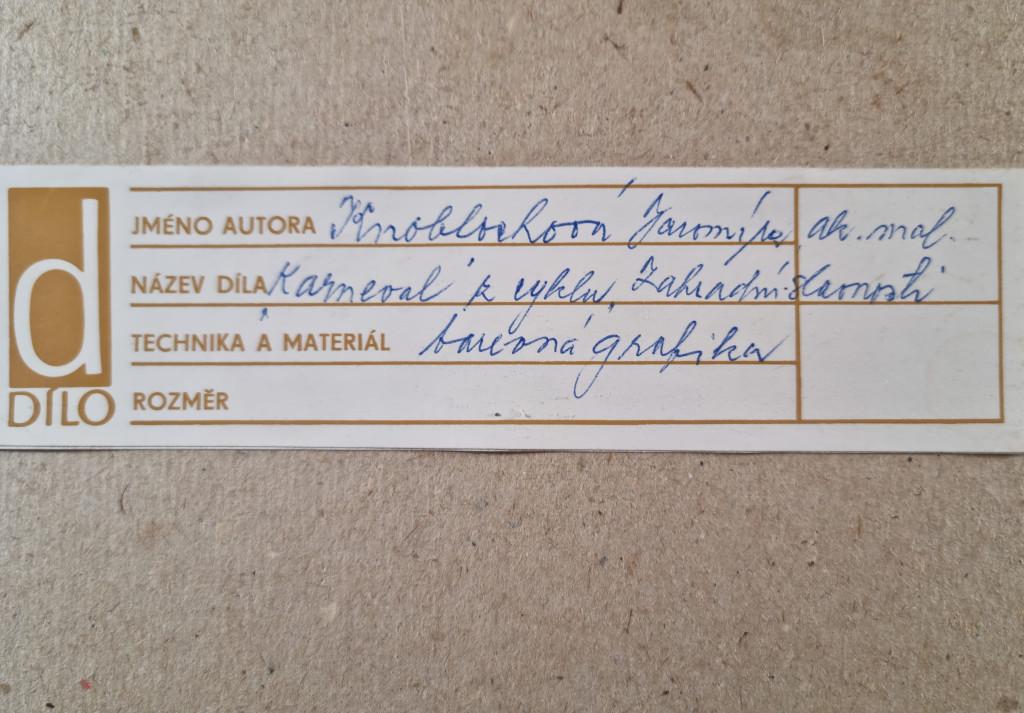 d
DÍLO
JMÉNO AUTORA Knoblochová Jaromíra ak. mal.
NÁZEV DÍLA Karneval z cyklu „Zahradní slavnosti
TECHNIKA A MATERIÁL barevná grafika
ROZMĚR